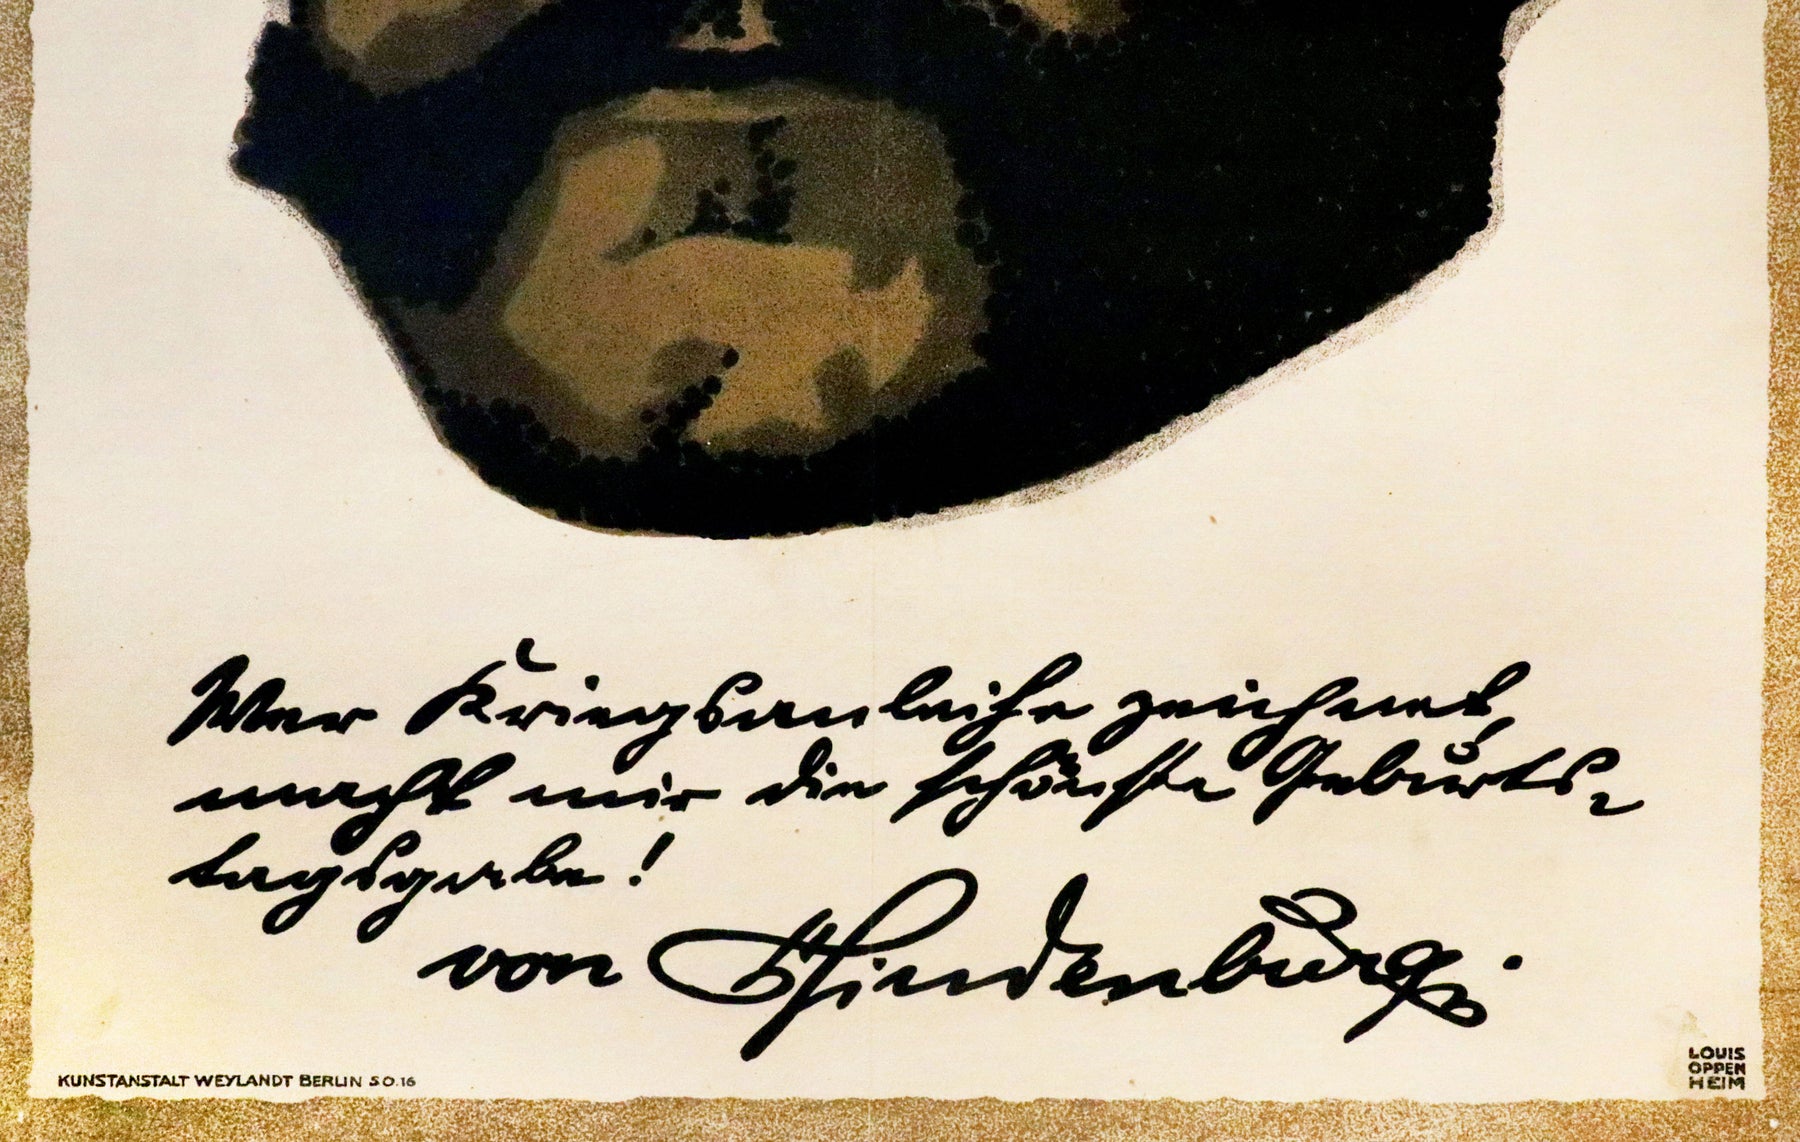 Wer Kriegsanleihe zeichnet,
macht mir die schönste Geburts-
tagsgabe!
von Hindenburg.
KUNSTANSTALT WEYLANDT BERLIN S.O.16
LOUIS
OPPEN
HEIM